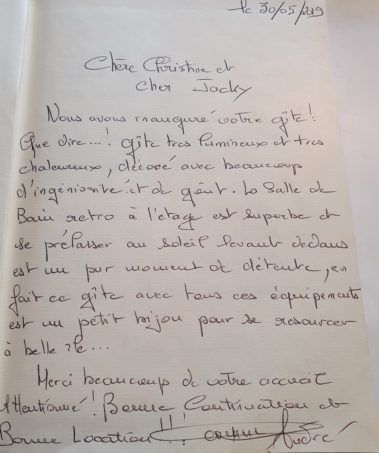 le 30/05/2019
Chère Christine et
cher Jacky
Nous avons inauguré votre gîte!
Que dire...! gîte très lumineux et très
chaleureux, décoré avec beaucoup
d'ingéniosité et de goût. La Salle de
Bain retro à l'étage est superbe et
se prélasser au soleil levant dedans
est un pur moment de détente, en
fait ce gîte avec tous ces équipements
est un petit bijou pour se resourcer
à belle île...
Merci beaucoup de votre accueil
Attentionné! Bonne Continuation et
Bonne Location!!! André